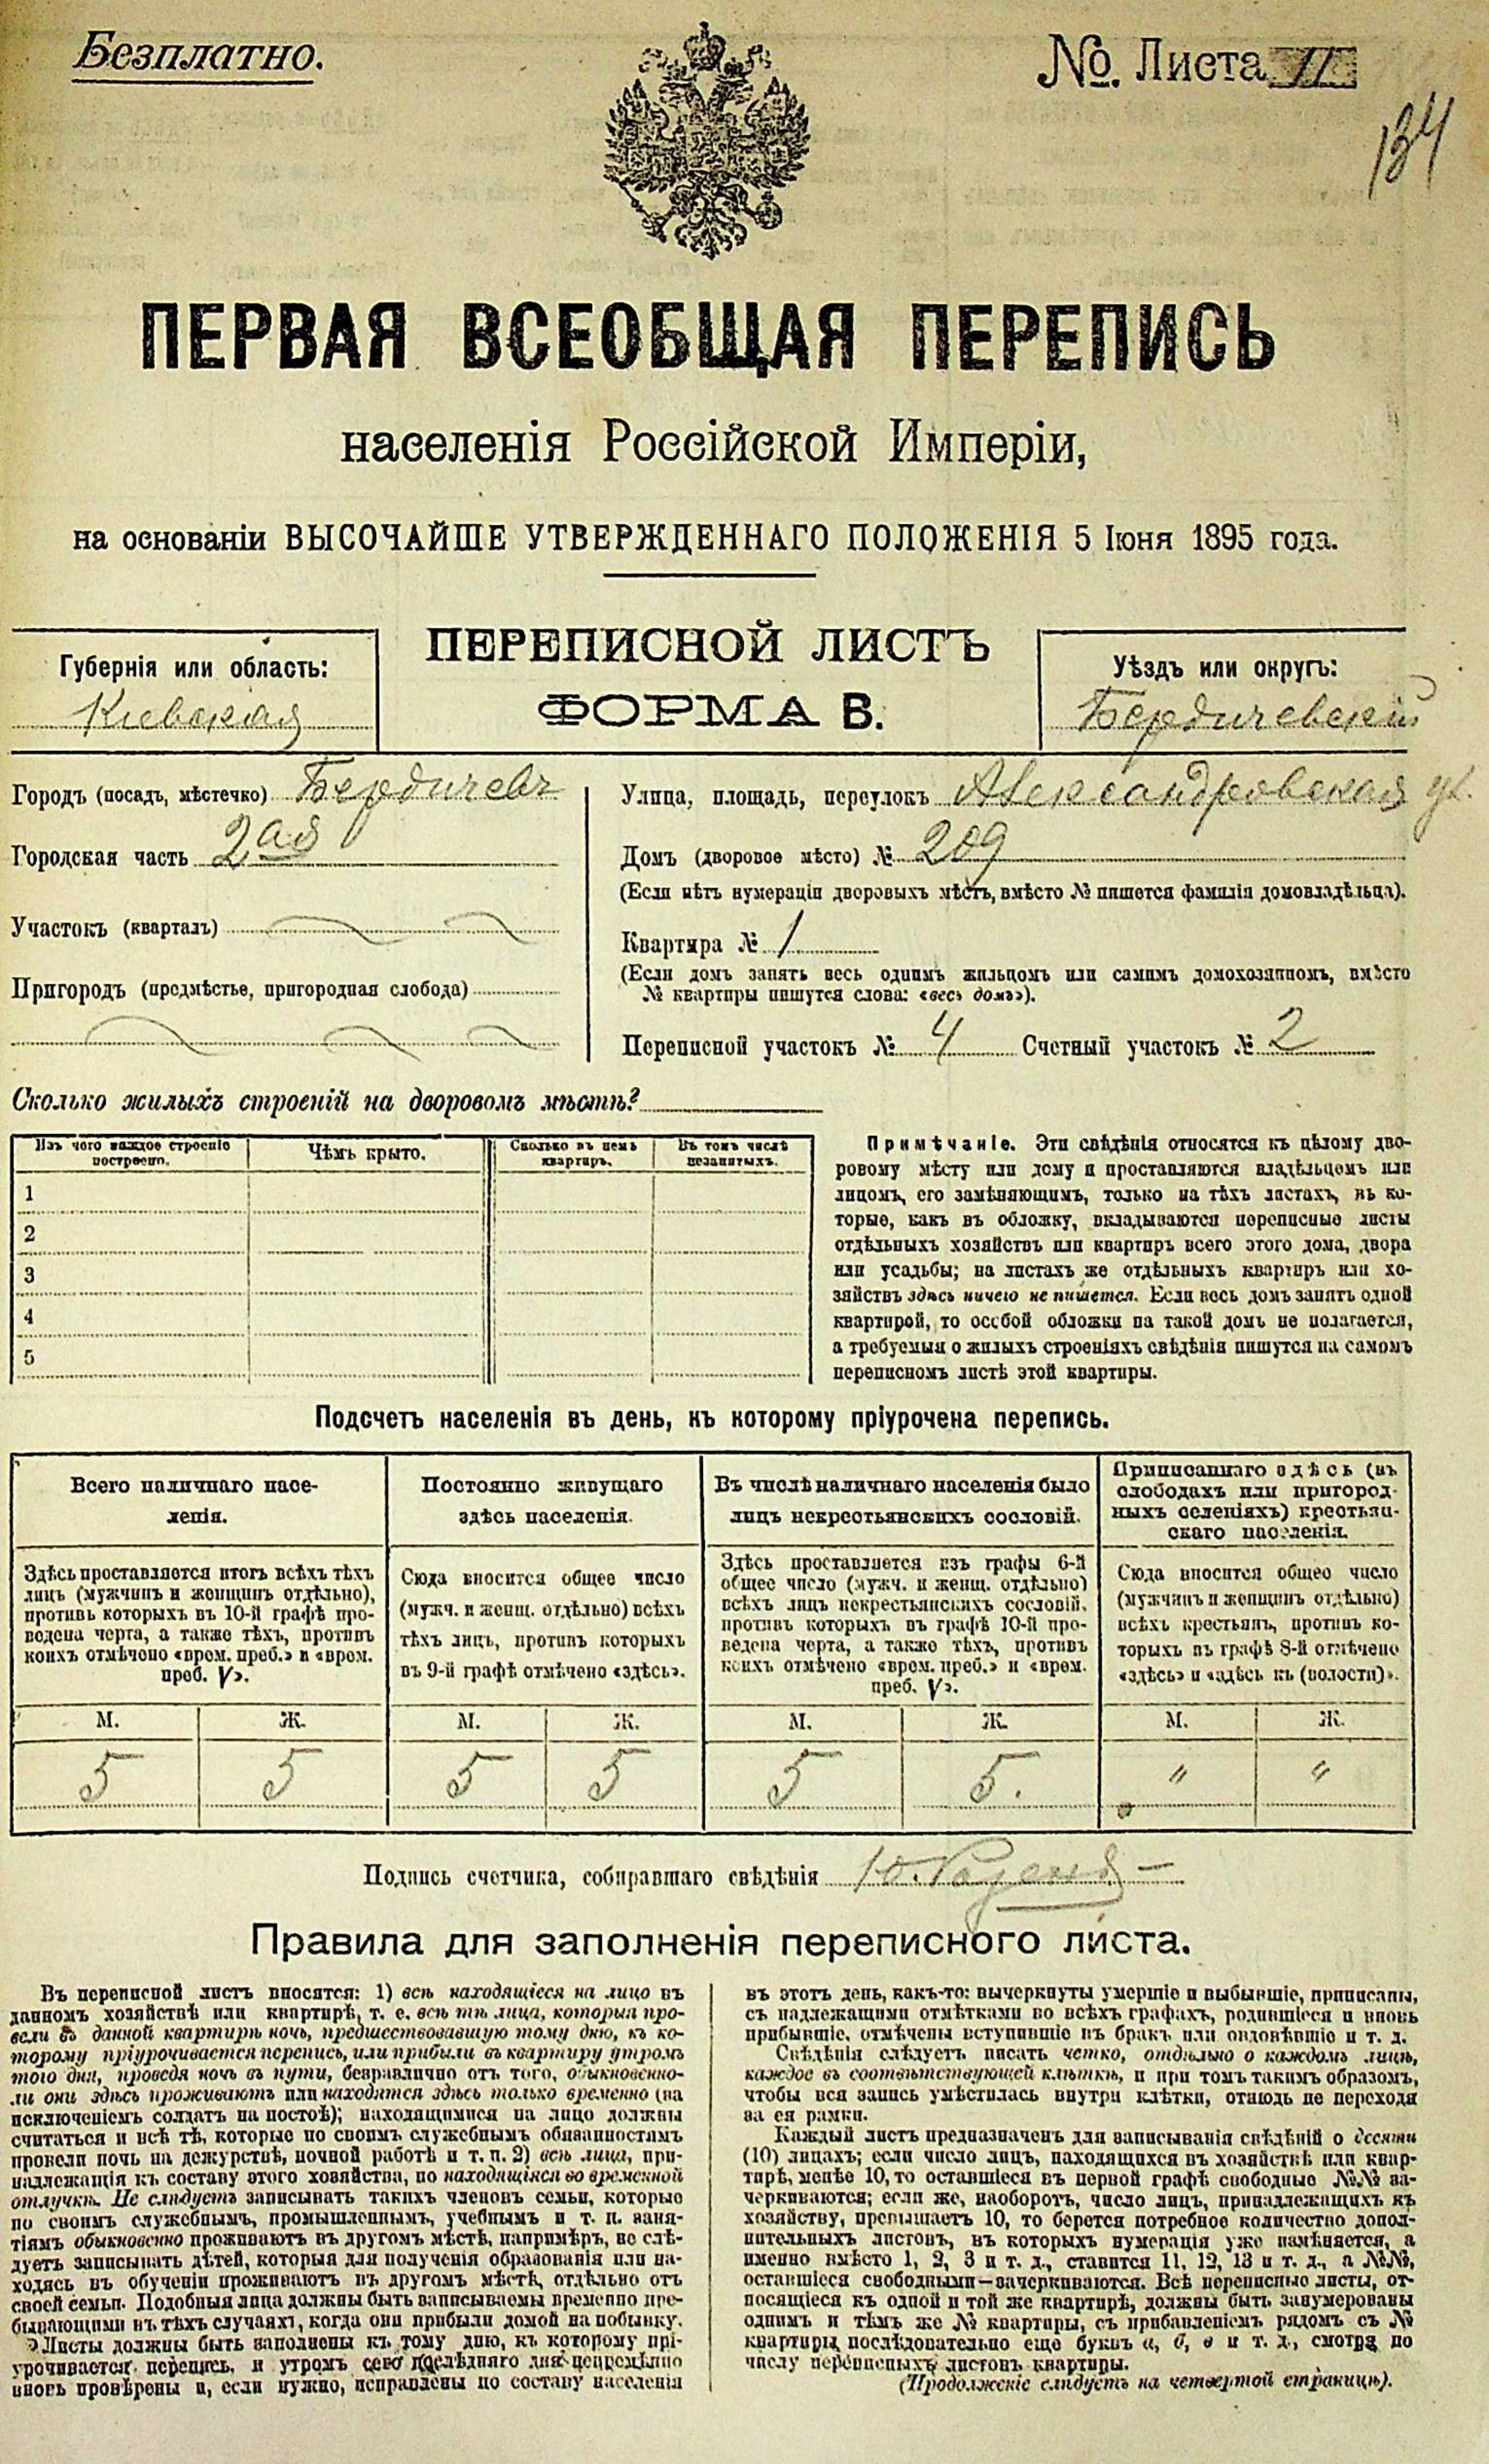 Безплатно.
№. Листа 11
134
ПЕРВАЯ ВСЕОБЩАЯ ПЕРЕПИСЬ
населенія Россійской Имперіи,
на основаніи ВЫСОЧАЙШЕ УТВЕРЖДЕННАГО ПОЛОЖЕНІЯ 5 Іюня 1895 года.
ПЕРЕПИСНОЙ ЛИСТЪ
ФОРМА В.
Губернія или область:
Кіевская
Уѣздъ или округъ:
Бердичевскій
Городъ (посадъ, мѣстечко) Бердичевъ
Городская часть 2ая
Участокъ (кварталъ)
Пригородъ (предмѣстье, пригородная слобода)
Улица, площадь, переулокъ Александровская ул.
Домъ (дворовое мѣсто) № 209
(Если нѣтъ нумераціи дворовыхъ мѣстъ, вмѣсто № пишется фамилія домовладѣльца).
Квартира № 1
(Если домъ занятъ весь однимъ жильцомъ или самимъ домохозяиномъ, вмѣсто
№ квартиры пишутся слова: «весь домъ»).
Переписной участокъ № 4 Счетный участокъ № 2
Сколько жилыхъ строеній на дворовомъ мѣстѣ?
Изъ чего каждое строеніе
построено.
Чѣмъ крыто.
Сколько въ немъ
квартиръ.
Въ томъ числѣ
незанятыхъ.
1
2
3
4
5
Примѣчаніе. Эти свѣдѣнія относятся къ цѣлому дво-
ровому мѣсту или дому и проставляются владѣльцомъ или
лицомъ, его замѣняющимъ, только на тѣхъ листахъ, въ ко-
торые, какъ въ обложку, вкладываются переписные листы
отдѣльныхъ хозяйствъ или квартиръ всего этого дома, двора
или усадьбы; на листахъ же отдѣльныхъ квартиръ или хо-
зяйствъ здѣсь ничего не пишется. Если весь домъ занятъ одной
квартирой, то особой обложки на такой домъ не полагается,
а требуемыя о жилыхъ строеніяхъ свѣдѣнія пишутся на самомъ
переписномъ листѣ этой квартиры.
Подсчетъ населенія въ день, къ которому пріурочена перепись.
Всего наличнаго насе-
ленія.
Здѣсь проставляется итогъ всѣхъ тѣхъ
лицъ (мужчинъ и женщинъ отдѣльно),
противъ которыхъ въ 10-й графѣ про-
ведена черта, а также тѣхъ, противъ
коихъ отмѣчено «врем. преб.» и «врем.
преб. V».
Постоянно живущаго
здѣсь населенія.
Сюда вносится общее число
(мужч. и женщ. отдѣльно) всѣхъ
тѣхъ лицъ, противъ которыхъ
въ 9-й графѣ отмѣчено «здѣсь».
Въ числѣ наличнаго населенія было
лицъ некрестьянскихъ сословій.
Здѣсь проставляется изъ графы 6-й
общее число (мужч. и женщ. отдѣльно)
всѣхъ лицъ некрестьянскихъ сословій,
противъ которыхъ въ графѣ 10-й про-
ведена черта, а также тѣхъ, противъ
коихъ отмѣчено «врем. преб.» и «врем.
преб. V».
Приписаннаго здѣсь (въ
слободахъ или пригород-
ныхъ селеніяхъ) крестьян-
скаго населенія.
Сюда вносится общее число
(мужчинъ и женщинъ отдѣльно)
всѣхъ крестьянъ, противъ ко-
торыхъ въ графѣ 8-й отмѣчено
«здѣсь» и «здѣсь къ (волости)».
М. Ж. М. Ж. М. Ж. М. Ж.
5 5 5 5 5 5. " "
Подпись счетчика, собиравшаго свѣдѣнія
Правила для заполненія переписного листа.
Въ переписной листъ вносятся: 1) всѣ находящіеся на лицо въ
данномъ хозяйствѣ или квартирѣ, т. е. всѣ тѣ лица, которыя про-
вели въ данной квартирѣ ночь, предшествовавшую тому дню, къ ко-
торому пріурочивается перепись, или прибыли въ квартиру утромъ
того дня, проведя ночь въ пути, безразлично отъ того, обыкновенно-
ли они здѣсь проживаютъ или находятся здѣсь только временно (за
исключеніемъ солдатъ на постоѣ); находящимися на лицо должны
считаться и всѣ тѣ, которые по своимъ служебнымъ обязанностямъ
провели ночь на дежурствѣ, ночной работѣ и т. п. 2) всѣ лица, при-
надлежащія къ составу этого хозяйства, но находящіяся во временной
отлучкѣ. Не слѣдуетъ записывать такихъ членовъ семьи, которые
по своимъ служебнымъ, промышленнымъ, учебнымъ и т. п. заня-
тіямъ обыкновенно проживаютъ въ другомъ мѣстѣ, напримѣръ, не слѣ-
дуетъ записывать дѣтей, которыя для полученія образованія или на-
ходясь въ обученіи проживаютъ въ другомъ мѣстѣ, отдѣльно отъ
своей семьи. Подобныя лица должны быть записываемы временно пре-
бывающими въ тѣхъ случаяхъ, когда они прибыли домой на побывку.
Листы должны быть заполнены къ тому дню, къ которому прі-
урочивается перепись, и утромъ сего послѣдняго дня непремѣнно
вновь провѣрены и, если нужно, исправлены по составу населенія
въ этотъ день, какъ-то: вычеркнуты умершіе и выбывшіе, приписаны,
съ надлежащими отмѣтками во всѣхъ графахъ, родившіеся и вновь
прибывшіе, отмѣчены вступившіе въ бракъ или овдовѣвшіе и т. д.
Свѣдѣнія слѣдуетъ писать четко, отдѣльно о каждомъ лицѣ,
каждое въ соотвѣтствующей клѣткѣ, и при томъ такимъ образомъ,
чтобы вся запись умѣстилась внутри клѣтки, отнюдь не переходя
за ея рамки.
Каждый листъ предназначенъ для записыванія свѣдѣній о десяти
(10) лицахъ; если число лицъ, находящихся въ хозяйствѣ или квар-
тирѣ, менѣе 10, то оставшіеся въ первой графѣ свободные №№ за-
черкиваются; если же, наоборотъ, число лицъ, принадлежащихъ къ
хозяйству, превышаетъ 10, то берется потребное количество допол-
нительныхъ листовъ, въ которыхъ нумерація уже измѣняется, а
именно вмѣсто 1, 2, 3 и т. д., ставится 11, 12, 13 и т. д., а №№,
оставшіеся свободными—зачеркиваются. Всѣ переписные листы, от-
носящіеся къ одной и той же квартирѣ, должны быть занумерованы
однимъ и тѣмъ же № квартиры, съ прибавленіемъ рядомъ съ №
квартиры послѣдовательно еще буквъ а, б, в и т. д., смотря по
числу переписныхъ листовъ квартиры.
(Продолженіе слѣдуетъ на четвертой страницѣ).